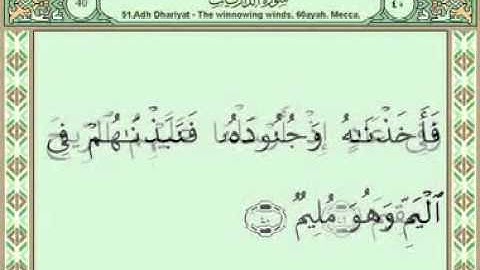 40 51.Adh Dhariyat - The winnowing winds, 60ayah. Mecca. سورة الذاريات ٤٠
فَأَخَذْنَٰهُ وَجُنُودَهُۥ فَنَبَذْنَٰهُمْ فِى
ٱلْيَمِّ وَهُوَ مُلِيمٌ ٤٠